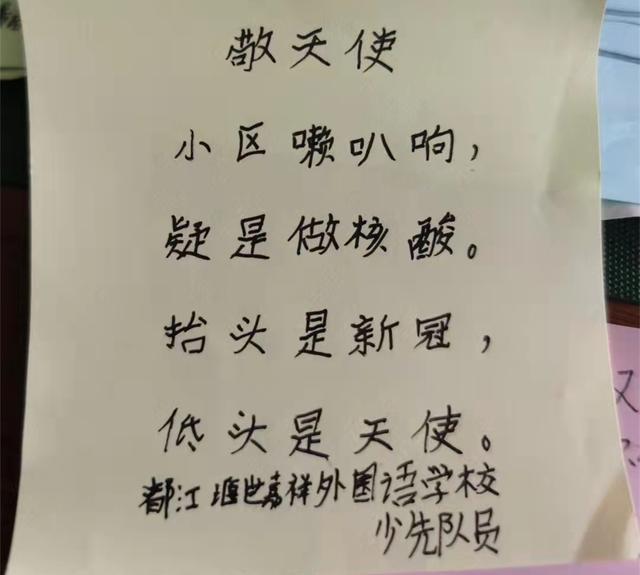 敬天使
小区喇叭响，
疑是做核酸。
抬头是新冠，
低头是天使。
都江堰世嘉祥外国语学校
少先队员
又